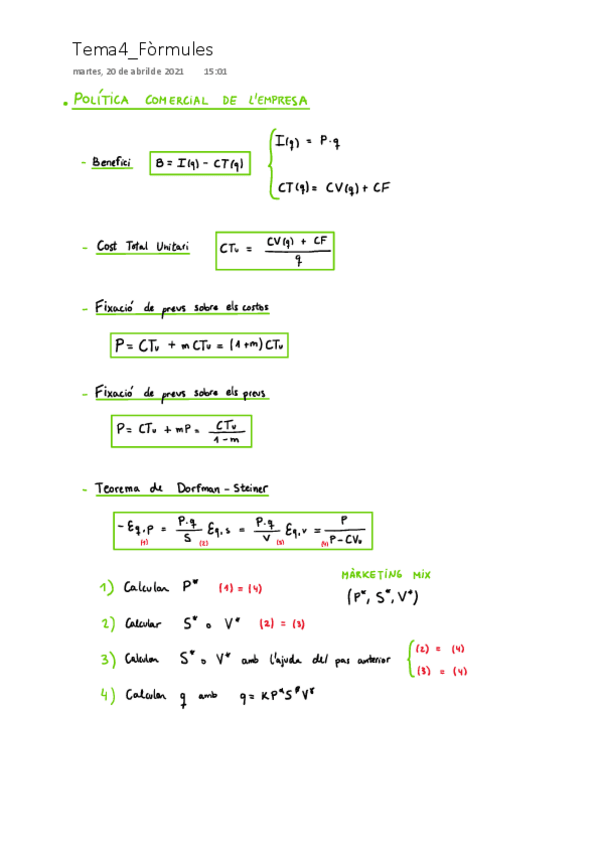 Tema4_Fòrmules
martes, 20 de abril de 2021 15:01
• POLÍTICA COMERCIAL DE L'EMPRESA
- Benefici B = I(q) - CT(q) { I(q) = P·q
CT(q) = CV(q) + CF
- Cost Total Unitari CTu = (CV(q) + CF) / q
- Fixació de preus sobre els costos
P = CTu + mCTu = (1+m)CTu
- Fixació de preus sobre els preus
P = CTu + mP = CTu / (1-m)
- Teorema de Dorfman-Steiner
-Eq,p = P·q / S Eq,s = P·q / V Eq,v = P / (P-CVu)
(1) (2) (3) (4)
MÀRKETING MIX
1) Calcular P* (1) = (4) (P*, S*, V*)
2) Calcular S* o V* (2) = (3)
3) Calcular S* o V* amb l'ajuda del pas anterior { (2) = (4)
(3) = (4)
4) Calcular q amb q = KPᵅSᵝVᵞ